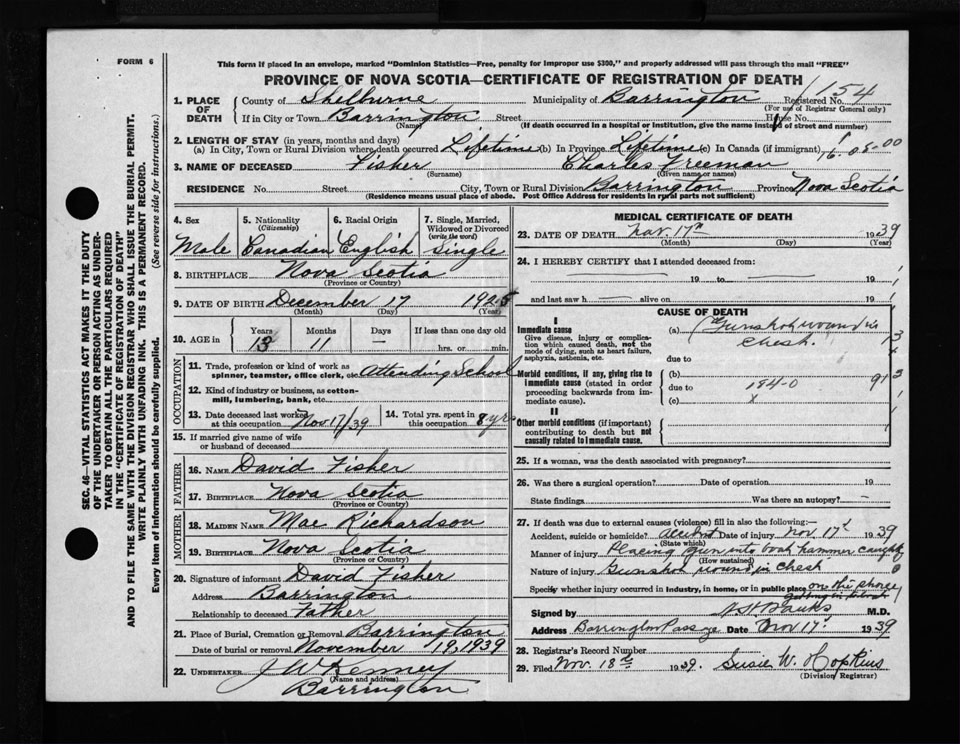 FORM 6
This form if placed in an envelope, marked "Dominion Statistics—Free, penalty for improper use $300," and properly addressed will pass through the mail "FREE"
PROVINCE OF NOVA SCOTIA—CERTIFICATE OF REGISTRATION OF DEATH
154
1. PLACE OF DEATH County of Shelburne Municipality of Barrington Registered No.
(For use of Registrar General only)
If in City or Town Barrington Street House No.
(Name) (If death occurred in a hospital or institution, give the name instead of street and number)
2. LENGTH OF STAY (in years, months and days)
(a) In City, Town or Rural Division where death occurred Lifetime (b) In Province Lifetime (c) In Canada (if immigrant)
16.05.00
3. NAME OF DECEASED Fisher Charles Freeman
(Surname) (Given name or names)
RESIDENCE No. Street City, Town or Rural Division Barrington Province Nova Scotia
(Residence means usual place of abode. Post Office Address for residents in rural parts not sufficient)
4. Sex 5. Nationality 6. Racial Origin 7. Single, Married, Widowed or Divorced
(Citizenship) (write the word)
Male Canadian English Single
8. BIRTHPLACE Nova Scotia
(Province or Country)
9. DATE OF BIRTH December 17 1925
(Month) (Day) (Year)
10. AGE in Years Months Days If less than one day old
13 11 — hrs. or min.
OCCUPATION
11. Trade, profession or kind of work as spinner, teamster, office clerk, etc. Attending School
12. Kind of industry or business, as cotton-mill, lumbering, bank, etc.
13. Date deceased last worked at this occupation Nov 17/39 14. Total yrs. spent in this occupation 8 yrs
15. If married give name of wife or husband of deceased
FATHER
16. NAME David Fisher
17. BIRTHPLACE Nova Scotia
(Province or Country)
MOTHER
18. MAIDEN NAME Mae Richardson
19. BIRTHPLACE Nova Scotia
(Province or Country)
20. Signature of informant David Fisher
Address Barrington
Relationship to deceased Father
21. Place of Burial, Cremation or Removal Barrington
Date of burial or removal November 19, 1939
22. UNDERTAKER J W Kenney
(Name and address)
Barrington
MEDICAL CERTIFICATE OF DEATH
23. DATE OF DEATH Nov. 17th 1939
(Month) (Day) (Year)
24. I HEREBY CERTIFY that I attended deceased from:
19 to 19
and last saw h — alive on 19
CAUSE OF DEATH
I
Immediate cause
Give disease, injury or complication which caused death, not the mode of dying, such as heart failure, asphyxia, asthenia, etc.
(a) Gunshot wound in
chest.
due to
Morbid conditions, if any, giving rise to immediate cause (stated in order proceeding backwards from immediate cause).
(b)
due to 184-0
(c) x
II
Other morbid conditions (if important) contributing to death but not causally related to immediate cause.
25. If a woman, was the death associated with pregnancy?
26. Was there a surgical operation? Date of operation 19
State findings Was there an autopsy? —
27. If death was due to external causes (violence) fill in also the following:—
Accident, suicide or homicide? Accident Date of injury Nov 17th 1939
(State which)
Manner of injury Placing gun into boat hammer caught
(How sustained)
Nature of injury Gunshot wound in chest
Specify whether injury occurred in industry, in home, or in public place on the shore
Signed by M.D.
Address Barrington Passage Date Nov 17th 1939
28. Registrar's Record Number
29. Filed Nov. 18th 1939. Susie W. Hopkins
(Division Registrar)
SEC. 46—VITAL STATISTICS ACT MAKES IT THE DUTY
OF THE UNDERTAKER OR PERSON ACTING AS UNDER-
TAKER TO OBTAIN ALL THE PARTICULARS REQUIRED
IN THE "CERTIFICATE OF REGISTRATION OF DEATH"
AND TO FILE THE SAME WITH THE DIVISION REGISTRAR WHO SHALL ISSUE THE BURIAL PERMIT.
WRITE PLAINLY WITH UNFADING INK. THIS IS A PERMANENT RECORD.
Every item of information should be carefully supplied. (See reverse side for instructions.)